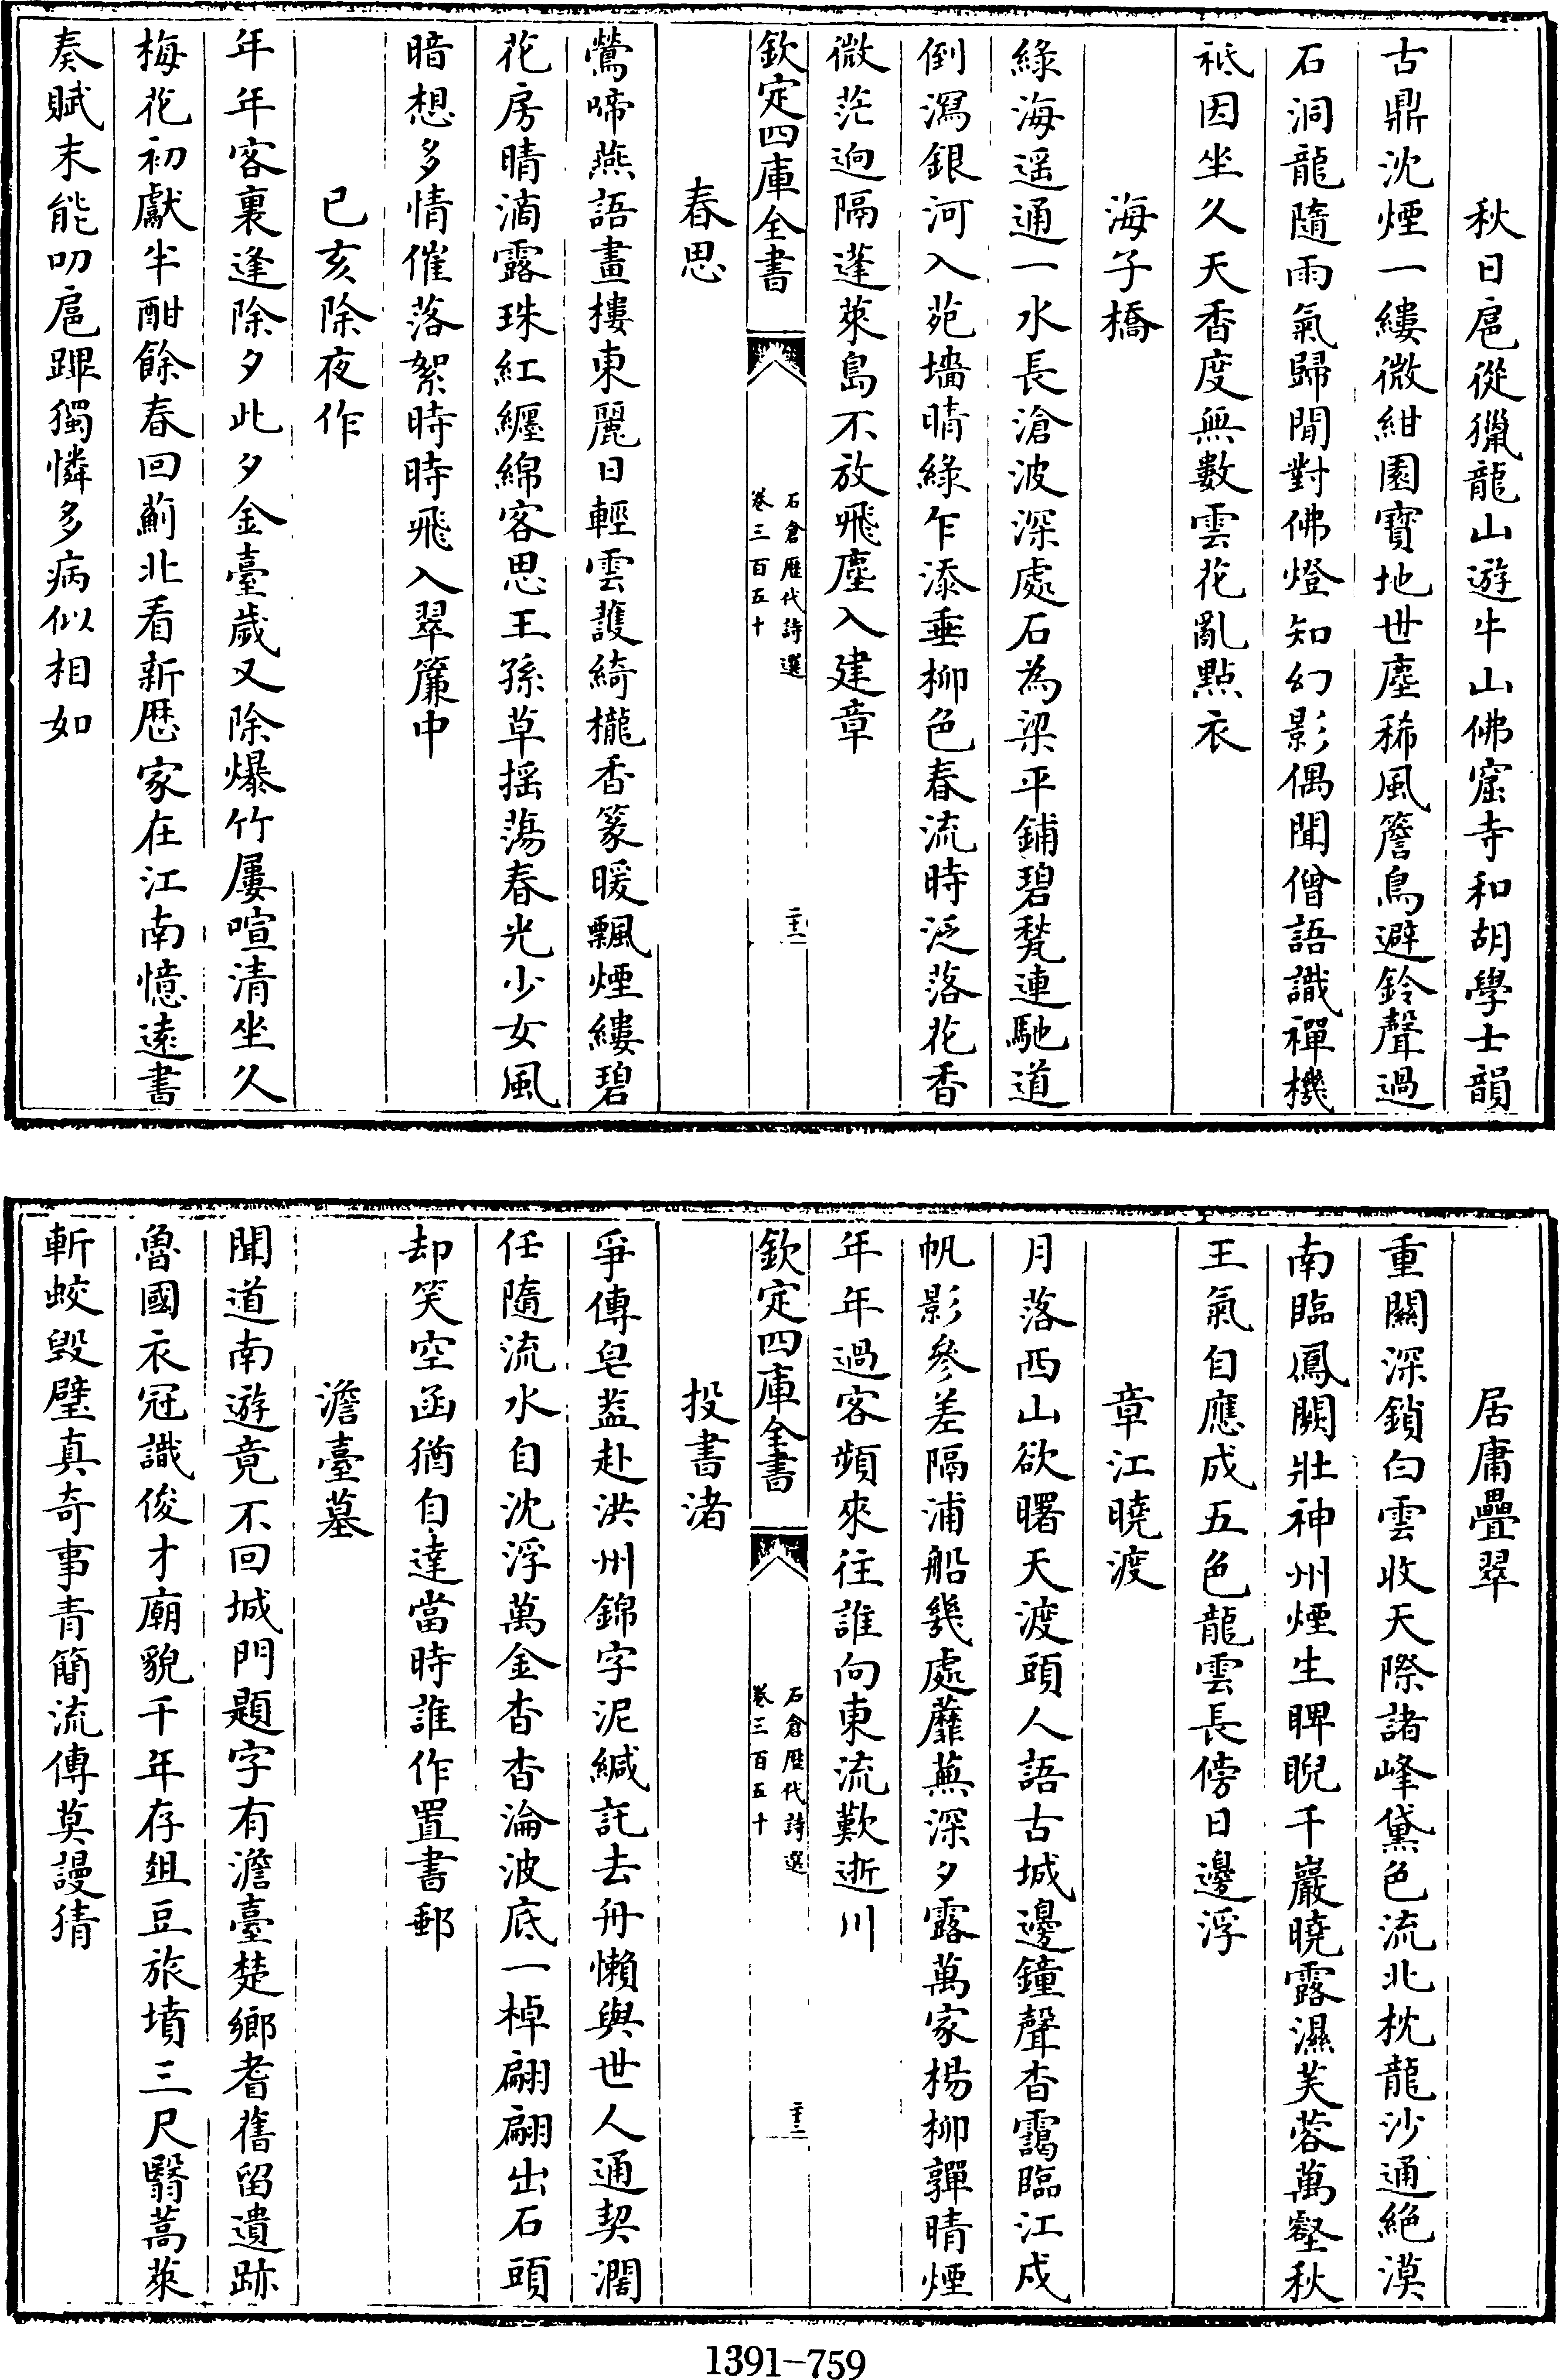 秋日扈從獵龍山遊牛山佛窟寺和胡學士韻
古鼎沈煙一縷微紺園寳地世塵稀風簷鳥避鈴聲過
石洞龍隨雨氣歸閒對佛燈知幻影偶聞僧語識禪機
祗因坐久天香度無數雲花亂點衣
海子橋
綠海遥通一水長滄波深處石為梁平鋪碧甃連馳道
倒瀉銀河入苑墻晴綠乍添垂柳色春流時泛落花香
微茫逈隔蓬萊島不放飛塵入建章
欽定四庫全書
石倉歴代詩選
卷三百五十
二十二
春思
鶯啼燕語畫樓東麗日輕雲護綺櫳香篆暖飄煙縷碧
花房晴滴露珠紅纒綿客思王孫草揺蕩春光少女風
暗想多情催落絮時時飛入翠簾中
已亥除夜作
年年客裏逢除夕此夕金臺歲又除爆竹屢喧清坐久
梅花初獻半酣餘春回薊北看新厯家在江南憶逺書
奏賦未能叨扈蹕獨憐多病似相如
居庸疊翠
重闗深鎖白雲收天際諸峰黛色流北枕龍沙通絶漠
南臨鳳闕壯神州煙生睥睨千巖曉露濕芙蓉萬壑秋
王氣自應成五色龍雲長傍日邊浮
章江曉渡
月落西山欲曙天渡頭人語古城邊鐘聲杳靄臨江戍
帆影參差隔浦船幾處蘼蕪深夕露萬家楊柳嚲晴煙
年年過客頻來往誰向東流歎逝川
欽定四庫全書
石倉歴代詩選
卷三百五十
二十三
投書渚
爭傳皂葢赴洪州錦字泥緘託去舟懶與世人通契濶
任隨流水自沈浮萬金杳杳淪波底一棹翩翩出石頭
却笑空函猶自達當時誰作置書郵
澹臺墓
聞道南遊竟不回城門題字有澹臺楚鄉耆舊留遺跡
魯國衣冠識俊才廟貌千年存俎豆旅墳三尺翳蒿萊
斬蛟毀璧真奇事青簡流傳莫謾猜
1391-759